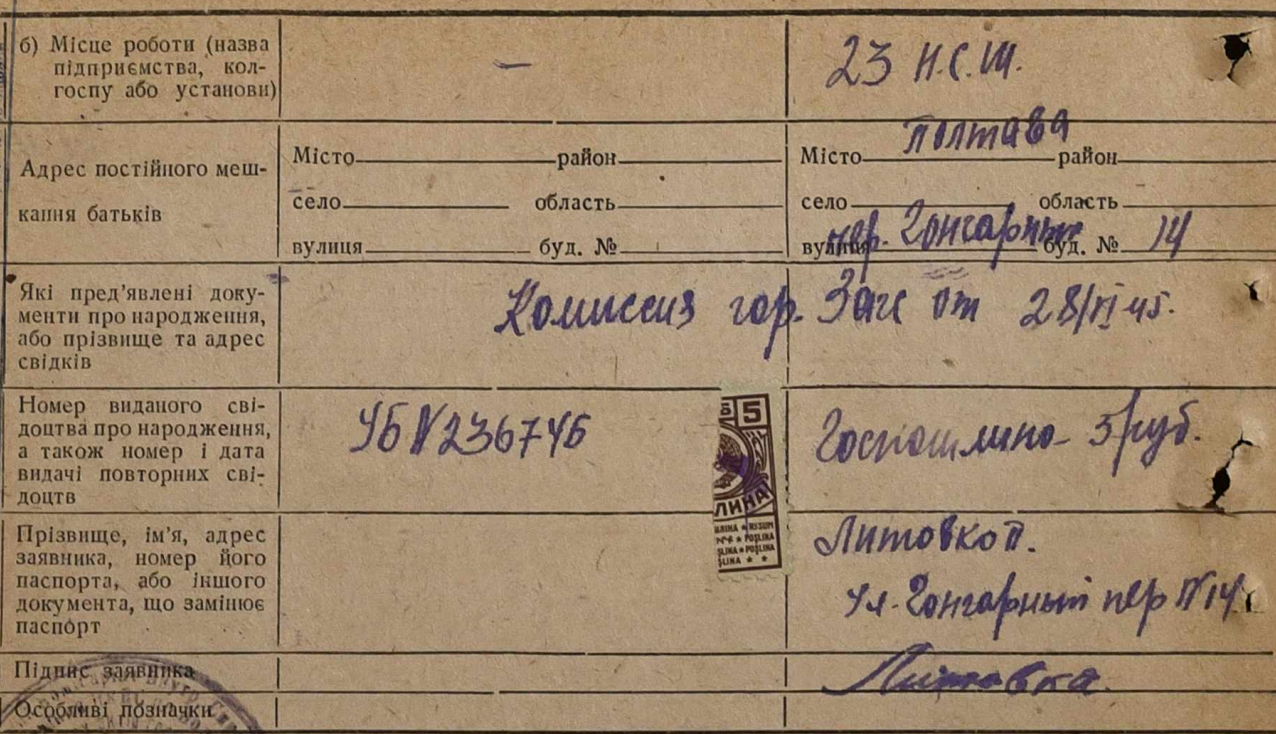 б) Місце роботи (назва
підприємства, кол-
госпу або установи)
—
23 Н.С.Ш.
Адрес постійного меш-
кання батьків
Місто район
село область
вулиця буд. №
Полтава
Місто район
село область
пер. Гончарный 14
вулиця буд. №
Які пред’явлені доку-
менти про народження,
або прізвище та адрес
свідків
Комиссия гор. Загс от 28/VI-45.
Номер виданого сві-
доцтва про народження,
а також номер і дата
видачі повторних сві-
доцтв
УБ N 236746
5
ЛИНА
Госпошлина 5 руб.
Прізвище, ім’я, адрес
заявника, номер його
паспорта, або іншого
документа, що замінює
паспорт
Литовко П.
Ул. Гончарный пер N 14
Підпис заявника
Литовка
Особливі позначки